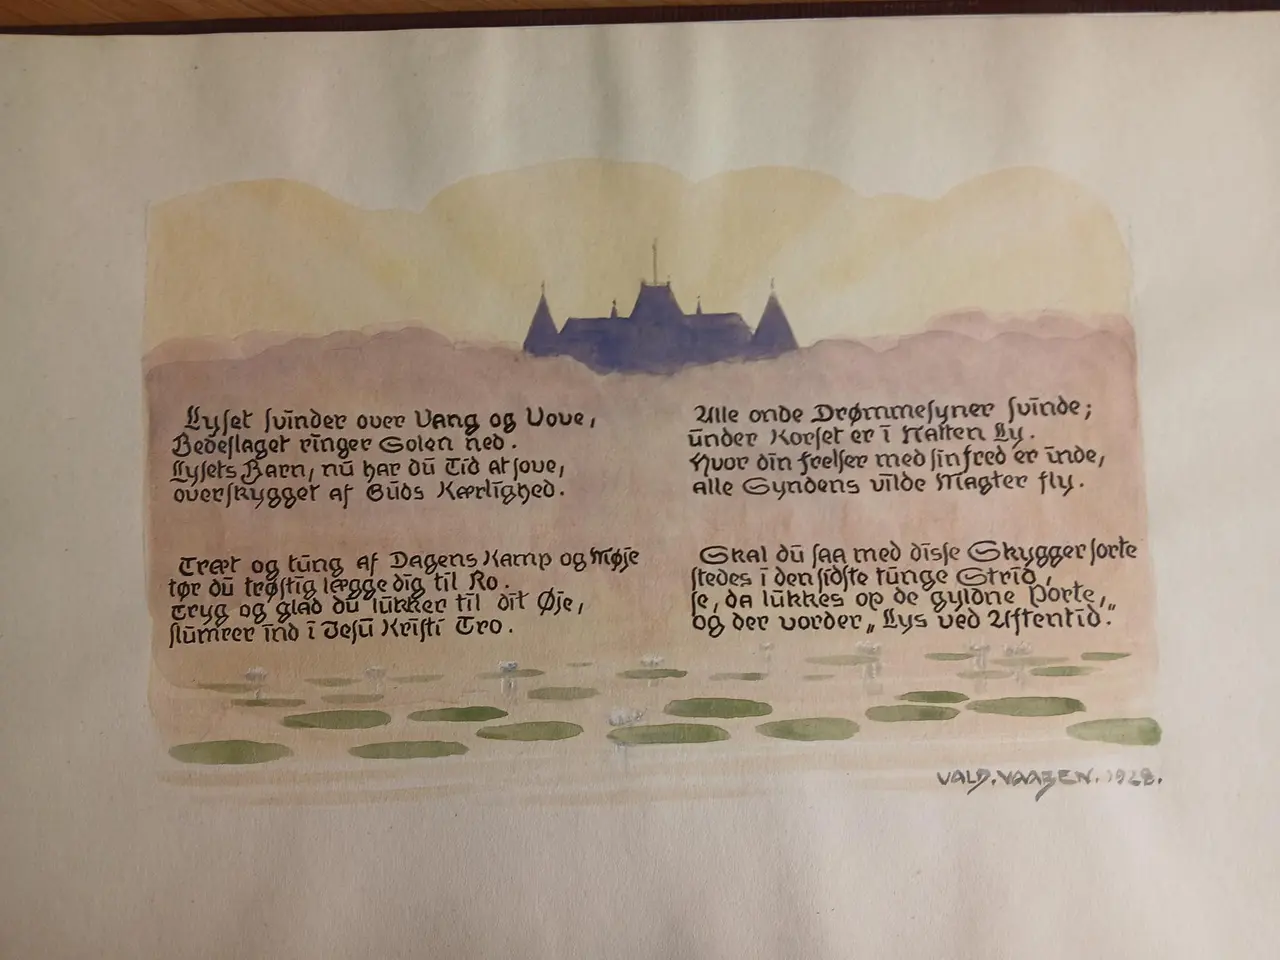 Lyset svinder over Vang og Vove,
Bedeslaget ringer Solen ned.
Lysets Barn, nu har du Tid at sove,
overskygget af Guds Kærlighed.
Træt og tung af Dagens Kamp og Møje
tør du trøstig lægge dig til Ro.
Tryg og glad du lukker til dit Øje,
slumrer ind i Jesu Kristi Tro.
Alle onde Drømmesyner svinde;
under Korset er i Natten Ly.
Hvor din frelser med sin fred er inde,
alle Syndens vilde Magter fly.
Skal du saa med disse Skygger sorte
stedes i den sidste tunge Strid,
se, da lukkes op de gyldne Porte,
og der vorder „Lys ved Aftentid.”
VALD. VAABEN. 1928.